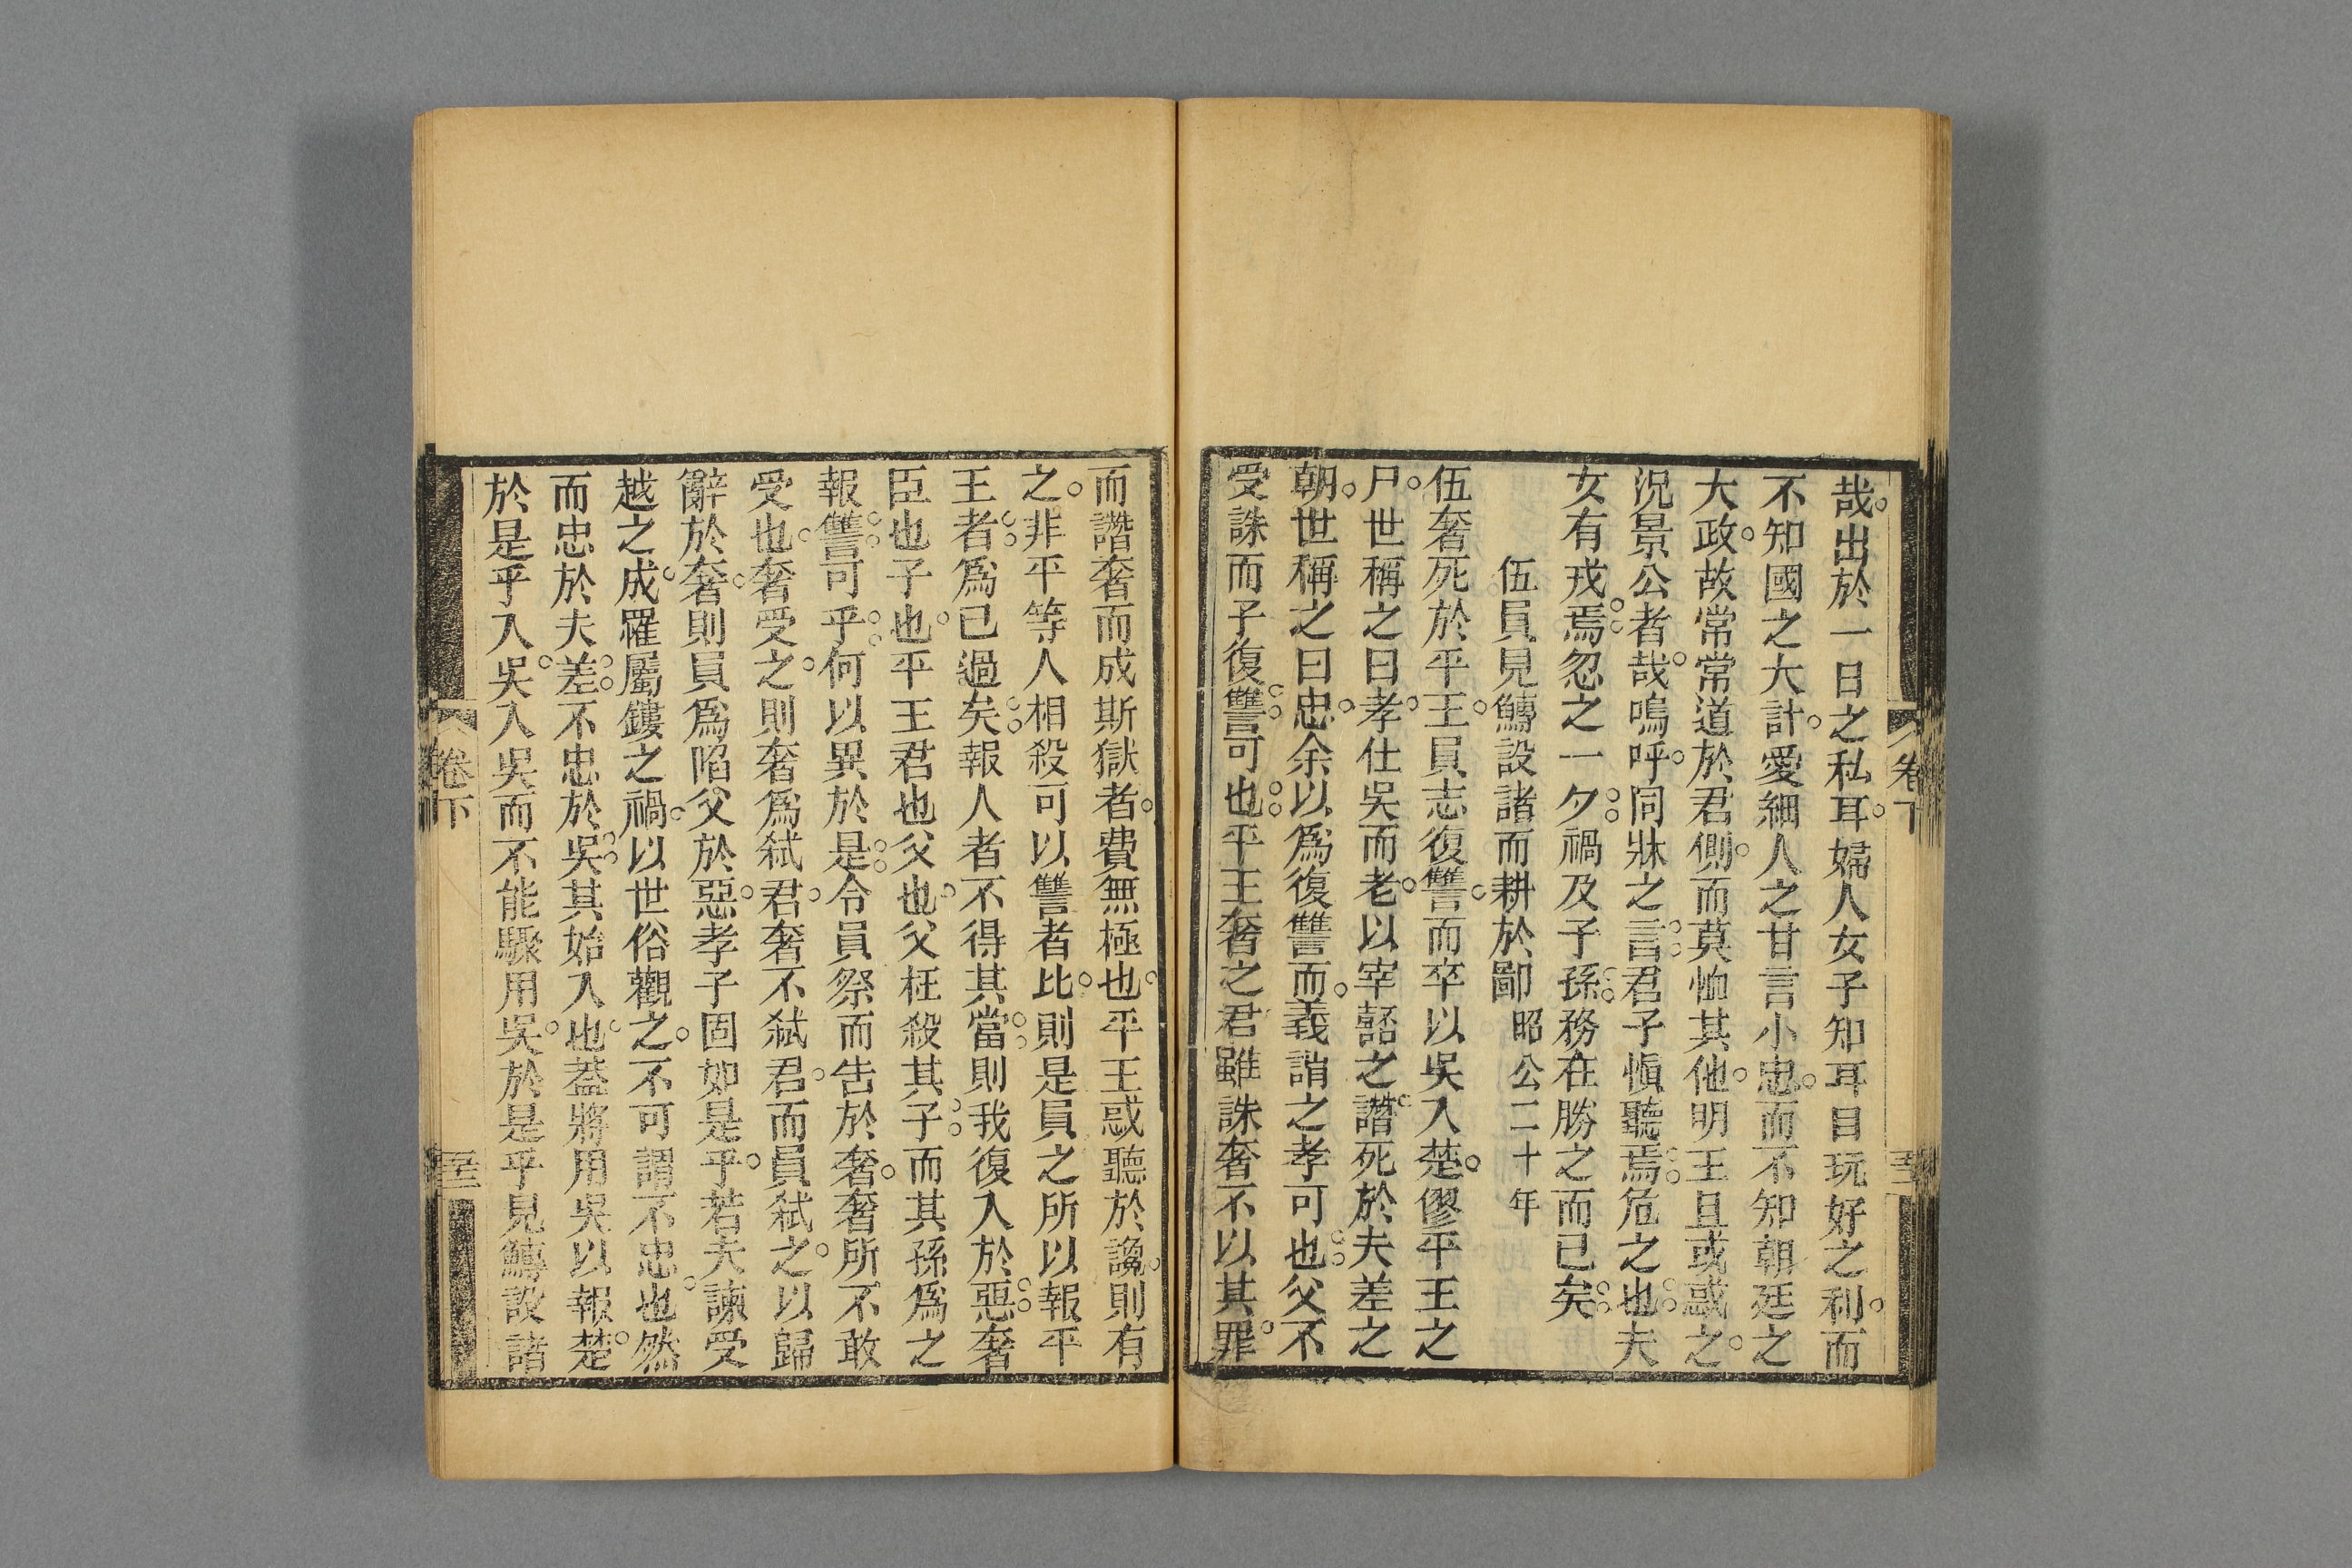 哉出於一日之私耳婦人女子知耳目玩好之利而
不知國之大計愛細人之甘言小忠而不知朝廷之
大政故常常道於君側而莫恤其他明王且或惑之
況景公者哉嗚呼同牀之言君子愼聽焉危之也夫
女有戎焉忽之一夕禍及子孫務在勝之而已矣
伍員見鱄設諸而耕於鄙 昭公二十年
伍奢死於平王員志復讐而卒以吳入楚僇平王之
尸世稱之曰孝仕吳而老以宰嚭之譖死於夫差之
朝世稱之曰忠余以爲復讐而義誚之孝可也父不
受誅而子復讐可也平王奢之君雖誅奢不以其罪
卷下
而譖奢而成斯獄者費無極也平王惑聽於讒則有
之非平等人相殺可以讐者比則是員之所以報平
王者爲已過矣報人者不得其當則我復入於惡奢
臣也子也平王君也父也父枉殺其子而其孫爲之
報讐可乎何以異於是令員祭而告於奢奢所不敢
受也奢受之則奢爲弑君奢不弑君而員弑之以歸
辭於奢則員爲陷父於惡孝子固如是乎若夫諫受
越之成罹屬鏤之禍以世俗觀之不可謂不忠也然
而忠於夫差不忠於吳其始入也蓋將用吳以報楚
於是乎入吳入吳而不能驟用吳於是乎見鱄設諸
卷下